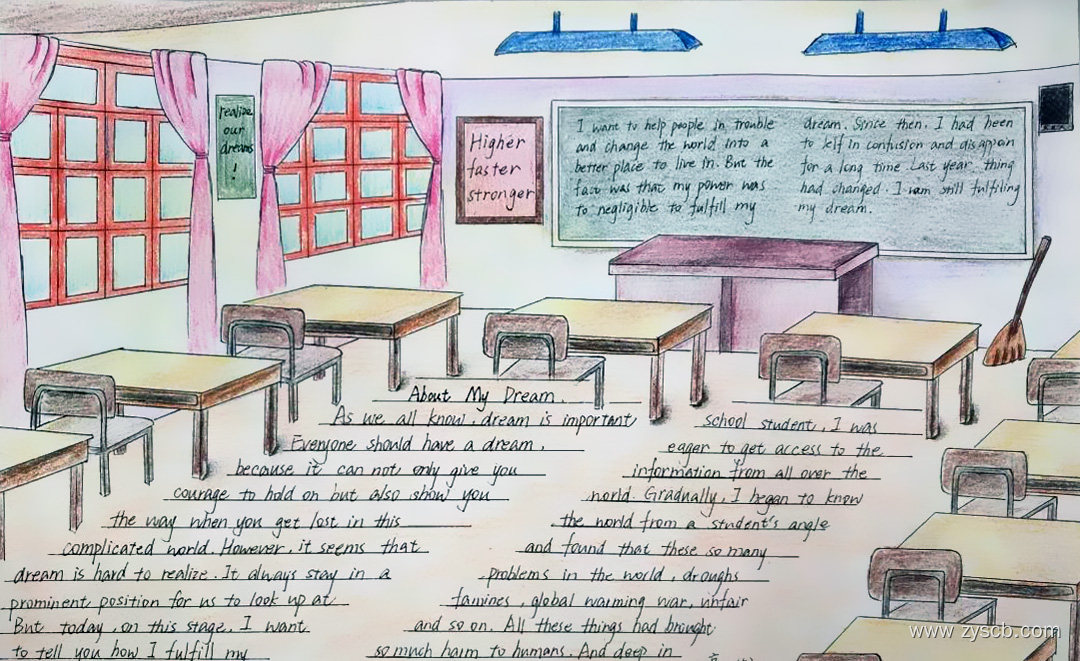 realize
our
dreams
!
Higher
faster
stronger
I want to help people in trouble
and change the world into a
better place to live in. But the
fact was that my power was
to negligible to fulfill my
dream. Since then, I had been
to left in confusion and disappoin
for a long time Last year, thing
had changed. I am still fulfiling
my dream.
About My Dream.
As we all know, dream is important
Everyone should have a dream,
because it can not only give you
courage to hold on but also show you
the way when you get lost in this
complicated world. However, it seems that
dream is hard to realize. It always stay in a
prominent position for us to look up at
But today, on this stage, I want
to tell you how I fulfill my
school student, I was
eager to get access to the
information from all over the
world. Gradually, I began to know
the world from a student's angle
and found that these so many
problems in the world, droughs
famines, global warming war, unfair
and so on. All these things had brought
so much harm to humans. And deep in
www.zyscb.com